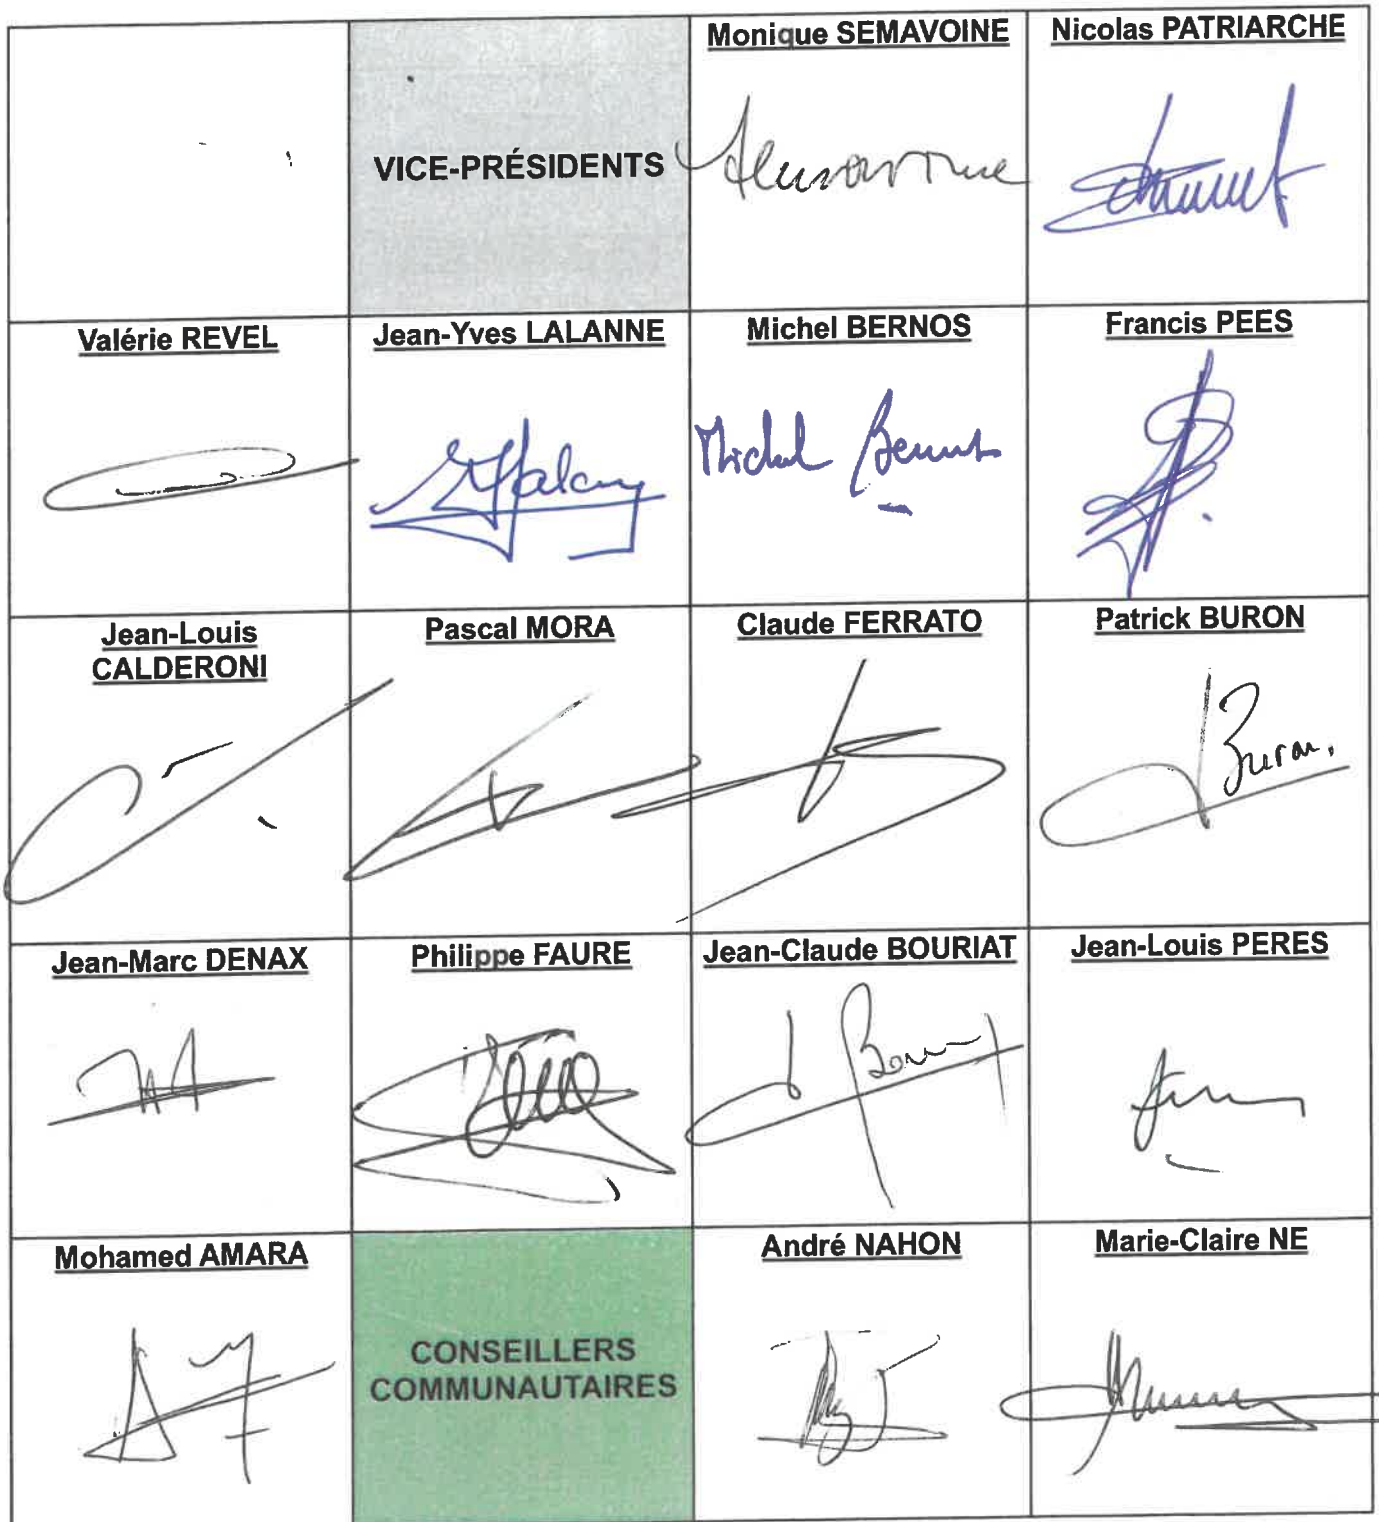 VICE-PRÉSIDENTS
Monique SEMAVOINE
Nicolas PATRIARCHE
Valérie REVEL
Jean-Yves LALANNE
Michel BERNOS
Michel Bernos
Francis PEES
Jean-Louis
CALDERONI
Pascal MORA
Claude FERRATO
Patrick BURON
Buron.
Jean-Marc DENAX
Philippe FAURE
Jean-Claude BOURIAT
Jean-Louis PERES
Mohamed AMARA
CONSEILLERS
COMMUNAUTAIRES
André NAHON
Marie-Claire NE